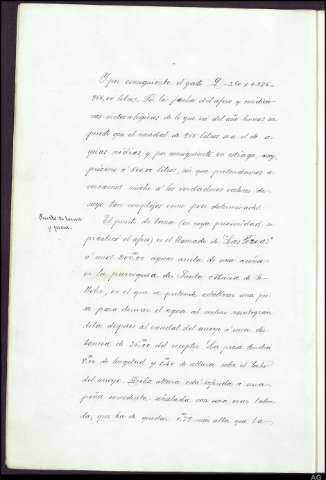 Y por consiguiente el gasto Q = 250 x 0.836 =
946,00 litros. Por la fecha del aforo y medicio-
nes meteorológicas de lo que va del año hemos su-
puesto que el caudal de 946 litros sea el de a-
guas medias y por consiguiente en estiage muy
próximo á 500,00 litros, sin que pretendamos a-
cercarnos mucho á los verdaderos valores de
suyo tan complejos como poco determinados.
Punto de toma
y presa.
El punto de toma (en cuya proximidad se
practicó el aforo) es el llamado de "Las Pozas"
á unos 800,00 aguas arriba de una
en la parroquia de Santa Maria de
en el que se pretende establecer una pre-
sa para derivar el agua al molino reintegrán-
dola despues al caudal del arroyo á una dis-
tancia de 36,00 del receptor. La presa tendrá
8,00 de longitud y 0,40 de altura sobre el lecho
del arroyo. Dicha altura está referida á una
peña inmediata señalada con una cruz labra-
da, que ha de quedar 0,75 mas alta que la
AG